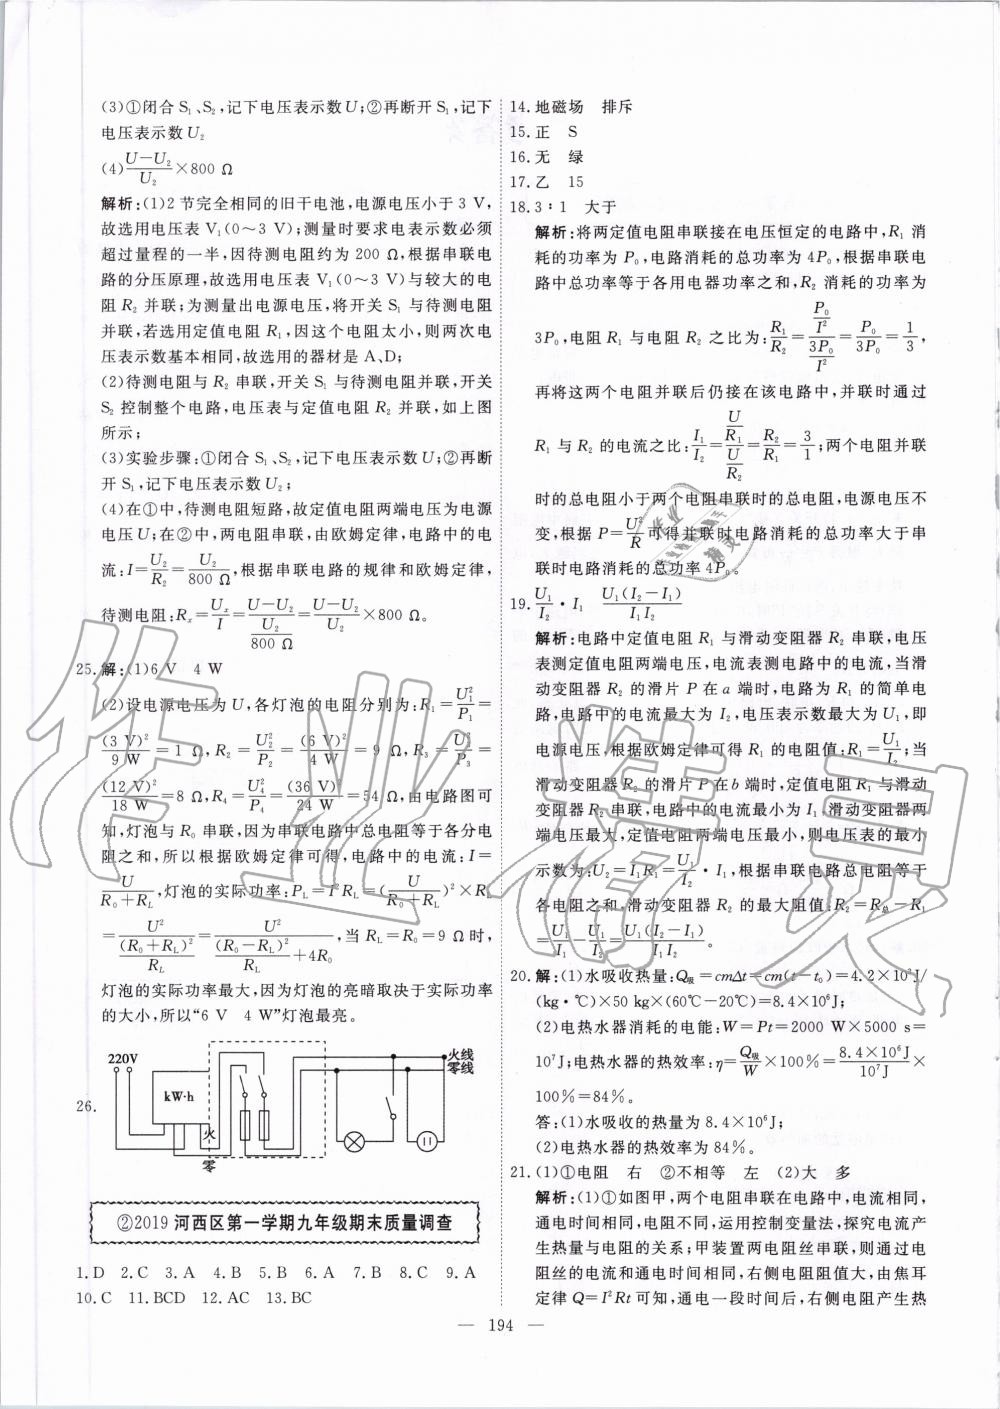 (3)①闭合 S₁、S₂,记下电压表示数 U;②再断开 S₁,记下
电压表示数 U₂
(4)(U−U₂)/U₂×800 Ω
解析:(1)2 节完全相同的旧干电池,电源电压小于 3 V,
故选用电压表 V₁(0～3 V);测量时要求电表示数必须
超过量程的一半,因待测电阻约为 200 Ω,根据串联电
路的分压原理,故选用电压表 V₁(0～3 V)与较大的电
阻 R₂ 并联;为测量出电源电压,将开关 S₁ 与待测电阻
并联,若选用定值电阻 R₁,因这个电阻太小,则两次电
压表示数基本相同,故选用的器材是 A、D;
(2)待测电阻与 R₂ 串联,开关 S₁ 与待测电阻并联,开关
S₂ 控制整个电路,电压表与定值电阻 R₂ 并联,如上图
所示;
(3)实验步骤:①闭合 S₁、S₂,记下电压表示数 U;②再断
开 S₁,记下电压表示数 U₂;
(4)在①中,待测电阻短路,故定值电阻两端电压为电源
电压 U;在②中,两电阻串联,由欧姆定律,电路中的电
流:I=U₂/R₂=U₂/800 Ω,根据串联电路的规律和欧姆定律,
待测电阻:Rₓ=Uₓ/I=(U−U₂)/(U₂/800 Ω)=(U−U₂)/U₂×800 Ω。
25.解:(1)6 V 4 W
(2)设电源电压为 U,各灯泡的电阻分别为:R₁=U₁²/P₁=
(3 V)²/9 W=1 Ω,R₂=U₂²/P₂=(6 V)²/4 W=9 Ω,R₃=U₃²/P₃=
(12 V)²/18 W=8 Ω,R₄=U₄²/P₄=(36 V)²/24 W=54 Ω,由电路图可
知,灯泡与 R₀ 串联,因为串联电路中总电阻等于各分电
阻之和,所以根据欧姆定律可得,电路中的电流:I=
U/(R₀+R_L),灯泡的实际功率:P_L=I²R_L=(U/(R₀+R_L))²×R_L
=U²/((R₀+R_L)²/R_L)=U²/((R₀−R_L)²/R_L+4R₀),当 R_L=R₀=9 Ω 时,
灯泡的实际功率最大,因为灯泡的亮暗取决于实际功率
的大小,所以“6 V 4 W”灯泡最亮。
26.
220V
kW·h
火
零
火线
零线
②2019 河西区第一学期九年级期末质量调查
1.D 2.C 3.A 4.B 5.B 6.A 7.B 8.C 9.A
10.C 11.BCD 12.AC 13.BC
14.地磁场 排斥
15.正 S
16.无 绿
17.乙 15
18.3∶1 大于
解析:将两定值电阻串联接在电压恒定的电路中,R₁ 消
耗的功率为 P₀,电路消耗的总功率为 4P₀,根据串联电
路中总功率等于各用电器功率之和,R₂ 消耗的功率为
3P₀,电阻 R₁ 与电阻 R₂ 之比为:R₁/R₂=(P₀/I²)/(3P₀/I²)=P₀/3P₀=1/3,
再将这两个电阻并联后仍接在该电路中,并联时通过
R₁ 与 R₂ 的电流之比:I₁/I₂=(U/R₁)/(U/R₂)=R₂/R₁=3/1;两个电阻并联
时的总电阻小于两个电阻串联时的总电阻,电源电压不
变,根据 P=U²/R可得并联时电路消耗的总功率大于串
联时电路消耗的总功率 4P₀。
19.U₁/I₂·I₁ U₁(I₂−I₁)/I₁I₂
解析:电路中定值电阻 R₁ 与滑动变阻器 R₂ 串联,电压
表测定值电阻两端电压,电流表测电路中的电流,当滑
动变阻器 R₂ 的滑片 P 在 a 端时,电路为 R₁ 的简单电
路,电路中的电流最大为 I₂,电压表示数最大为 U₁,即
电源电压,根据欧姆定律可得 R₁ 的电阻值:R₁=U₁/I₂;当
滑动变阻器 R₂ 的滑片 P 在 b 端时,定值电阻 R₁ 与滑动
变阻器 R₂ 串联,电路中的电流最小为 I₁,滑动变阻器两
端电压最大,定值电阻两端电压最小,则电压表的最小
示数为:U₂=I₁R₁=U₁/I₂·I₁,根据串联电路总电阻等于
各电阻之和,滑动变阻器 R₂ 的最大阻值:R₂=R总−R₁
=U₁/I₁−U₁/I₂=U₁(I₂−I₁)/I₁I₂。
20.解:(1)水吸收热量:Q吸=cmΔt=cm(t−t₀)=4.2×10³J/
(kg·℃)×50 kg×(60℃−20℃)=8.4×10⁶J;
(2)电热水器消耗的电能:W=Pt=2000 W×5000 s=
10⁷J;电热水器的热效率:η=Q吸/W×100%=8.4×10⁶J/10⁷J×
100%=84%。
答:(1)水吸收的热量为 8.4×10⁶J;
(2)电热水器的热效率为 84%。
21.(1)①电阻 右 ②不相等 左 (2)大 多
解析:(1)①如图甲,两个电阻串联在电路中,电流相同,
通电时间相同,电阻不同,运用控制变量法,探究电流产
生热量与电阻的关系;甲装置两电阻丝串联,则通过电
阻丝的电流和通电时间相同,右侧电阻阻值大,由焦耳
定律 Q=I²Rt 可知,通电一段时间后,右侧电阻产生热
— 194 —
作业精灵